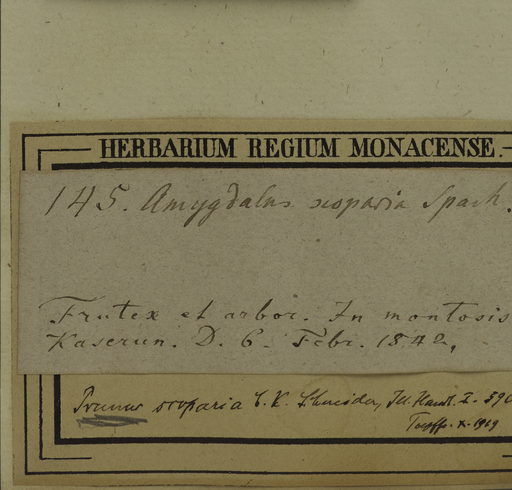 HERBARIUM REGIUM MONACENSE.
145. Amygdalus scoparia Spach.
Frutex et arbor. In montosis
Kaserun. D. 6. Febr. 1842.
Prunus scoparia C. K. Schneider, Ill. Handb. I. 590
1919